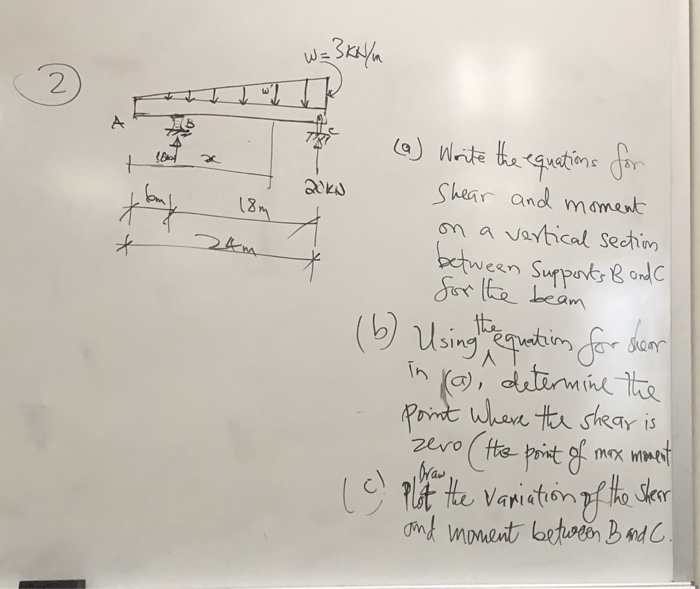 2
W = 3 KN/m
w'
A
B
C
x
20 KN
6m
18m
24m
(a) Write the equations for
Shear and moment
on a vertical section
between Supports B and C
for the beam
(b) Using the equation for shear
in (a), determine the
point where the shear is
zero (the point of max moment
(c) Plot Draw the variation of the shear
and moment between B and C.